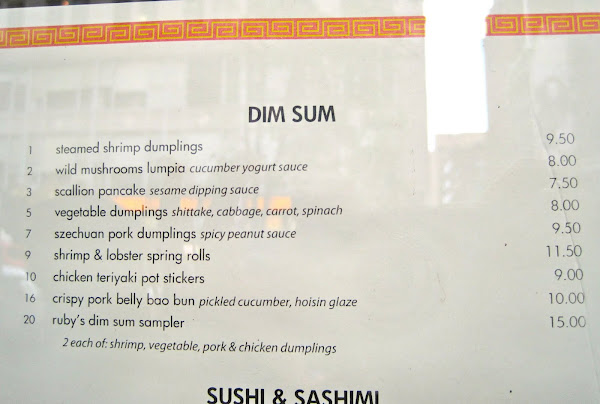 DIM SUM
1 steamed shrimp dumplings 9.50
2 wild mushrooms lumpia cucumber yogurt sauce 8.00
3 scallion pancake sesame dipping sauce 7.50
5 vegetable dumplings shittake, cabbage, carrot, spinach 8.00
7 szechuan pork dumplings spicy peanut sauce 9.50
9 shrimp & lobster spring rolls 11.50
10 chicken teriyaki pot stickers 9.00
16 crispy pork belly bao bun pickled cucumber, hoisin glaze 10.00
20 ruby's dim sum sampler 15.00
2 each of: shrimp, vegetable, pork & chicken dumplings
SUSHI & SASHIMI